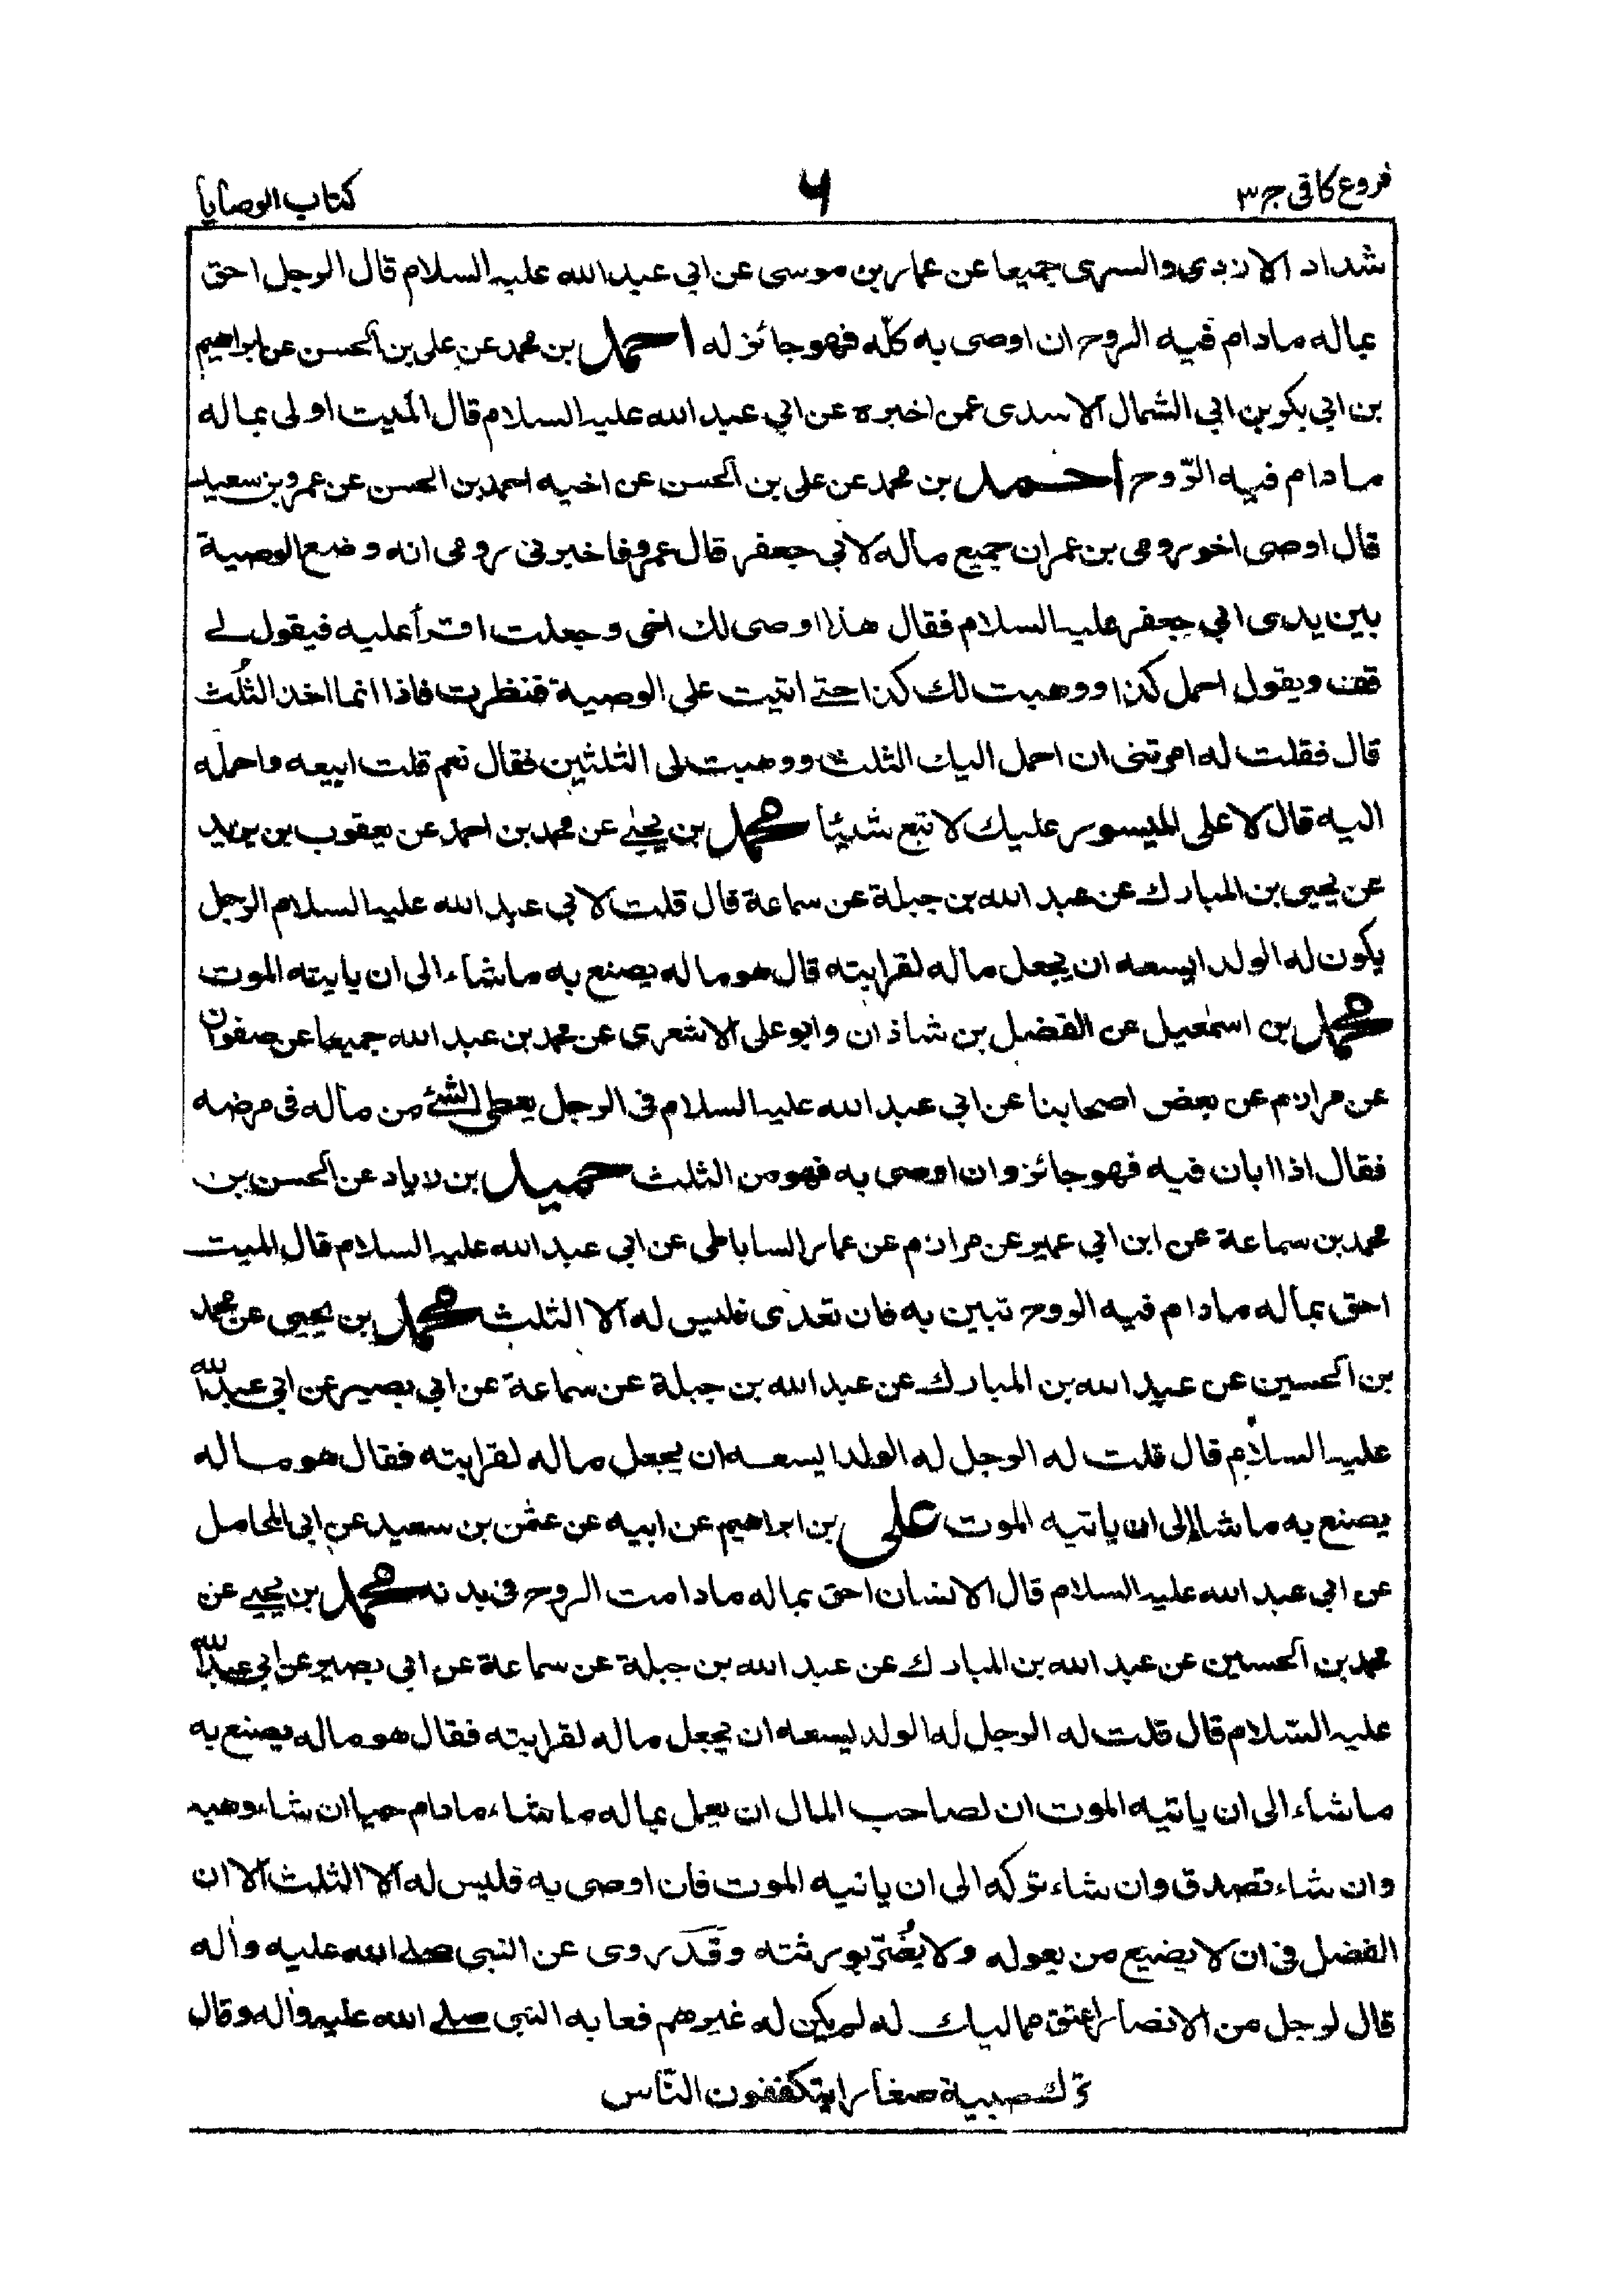 فروع كافى ج ٣
٦
كتاب الوصايا
شداد الازدى والسرى جميعا عن عمار بن موسى عن ابي عبد الله عليه السلام قال الرجل احق
بماله مادام فيه الروح ان اوصى به كلّه فهو جائز له احمد بن محمد عن على بن الحسن عن ابراهيم
بن ابي بكر بن ابي الشمال الاسدى عمن اخبره عن ابي عبد الله عليه السلام قال الميت اولى بماله
مادام فيه الرّوح احمد بن محمد عن على بن الحسن عن اخيه احمد بن الحسن عن عمرو بن سعيد
قال اوصى اخو رومى بن عمران جميع ماله لابي جعفر قال عمرو فاخبرنى رومى انه وضع الوصية
بين يدى ابي جعفر عليه السلام فقال هذا اوصى لك اخى وجعلت اقرأ عليه فيقول لے
قف ويقول احمل كذا ووهبت لك كذا حتے اتيت على الوصية فنظرت فاذا انما اخذ الثلُث
قال فقلت له امرتنى ان احمل اليك الثلث ووهبت لى الثلثين فقال نعم قلت ابيعه واحمله
اليه قال لا على الميسور عليك لا تبع شيئا محمد بن يحيے عن محمد بن احمد عن يعقوب بن يزيد
عن يحيى بن المبارك عن عبد الله بن جبلة عن سماعة قال قلت لابي عبد الله عليه السلام الرجل
يكون له الولد ايسعه ان يجعل ماله لقرابته قال هو ماله يصنع به ماشاء الى ان ياتيه الموت
محمد بن اسمٰعيل عن الفضل بن شاذان وابو على الاشعرى عن محمد بن عبد الله جميعا عن صفوان
عن مرازم عن بعض اصحابنا عن ابي عبد الله عليه السلام فى الرجل يعطى الشئے من ماله فى مرضه
فقال اذا ابان فيه فهو جائز وان اوصى به فهو من الثلث حميد بن زياد عن الحسن بن
محمد بن سماعة عن ابن ابي عمير عن مرازم عن عمار الساباطى عن ابي عبد الله عليه السلام قال الميت
احق بماله مادام فيه الروح تبين به فان تعدى فليس له الا الثلث محمد بن يحيى عن محمد
بن الحسين عن عبد الله بن المبارك عن عبد الله بن جبلة عن سماعة عن ابي بصير عن ابي عبد الله
عليه السلام قال قلت له الرجل له الولد ايسعه ان يجعل ماله لقرابته فقال هو ماله
يصنع به ماشاء الى ان ياتيه الموت على بن ابراهيم عن ابيه عن عثمٰن بن سعيد عن ابى المحامل
عن ابي عبد الله عليه السلام قال الانسان احق بماله مادامت الروح فى بدنه محمد بن يحيے عن
محمد بن الحسين عن عبد الله بن المبارك عن عبد الله بن جبلة عن سماعة عن ابي بصير عن ابي عبد الله
عليه السّلام قال قلت له الرجل له الولد ليسعه ان يجعل ماله لقرابته فقال هو ماله يصنع به
ماشاء الى ان ياتيه الموت ان لصاحب المال ان يعمل بماله ماشاء مادام حيا ان شاء وهبه
وان شاء تصدق وان شاء تركه الى ان ياتيه الموت فان اوصى به فليس له الا الثلث الا ان
الفضل فى ان لا يضيع من يعوله ولا يضُرّ بورثته وقد روى عن النبى صلے الله عليه واٰله
قال لرجل من الانصار اعتق مماليك له لم يكن له غيرهم فعابه النبى صلے الله عليه واٰله وقال
ترك صبية صغارا يتكففون النّاس